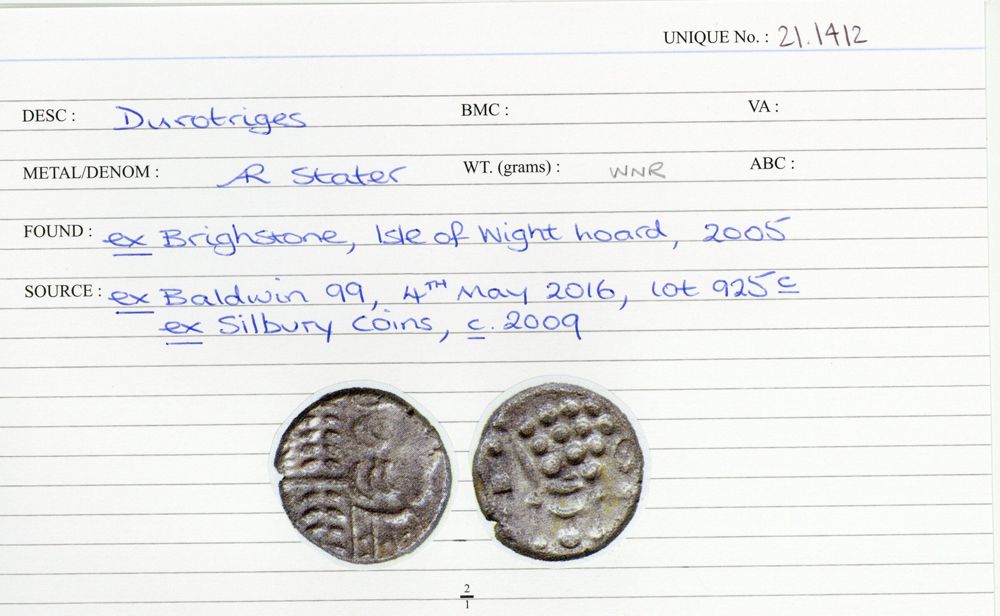 UNIQUE No. : 21.1412
DESC : Durotriges BMC : VA :
METAL/DENOM : AR Stater WT. (grams) : WNR ABC :
FOUND : ex Brighstone, Isle of Wight hoard, 2005
SOURCE : ex Baldwin 99, 4TH May 2016, lot 925c
ex Silbury Coins, c. 2009
2
1